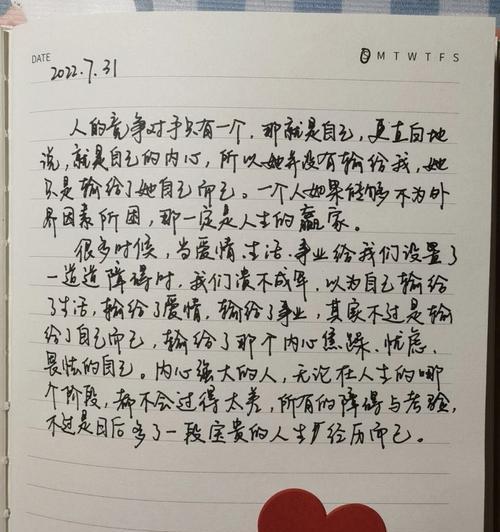 DATE 2022.7.31 S M T W T F S
人的竞争对手只有一个，那就是自己，更直白地
说，就是自己的内心，所以她并没有输给我，她
只是输给了她自己而已。一个人如果能够不为外
界因素所困，那一定是人生的赢家。
很多时候，当爱情、生活、事业给我们设置了
一道道障碍时，我们溃不成军，以为自己输给
了生活，输给了爱情，输给了事业，其实不过是输
给了自己而已，输给了那个内心焦躁、忧虑、
畏怯的自己。内心强大的人，无论在人生的哪
个阶段，都不会过得太差，所有的障碍与考验，
不过是日后多了一段宝贵的人生经历而已。